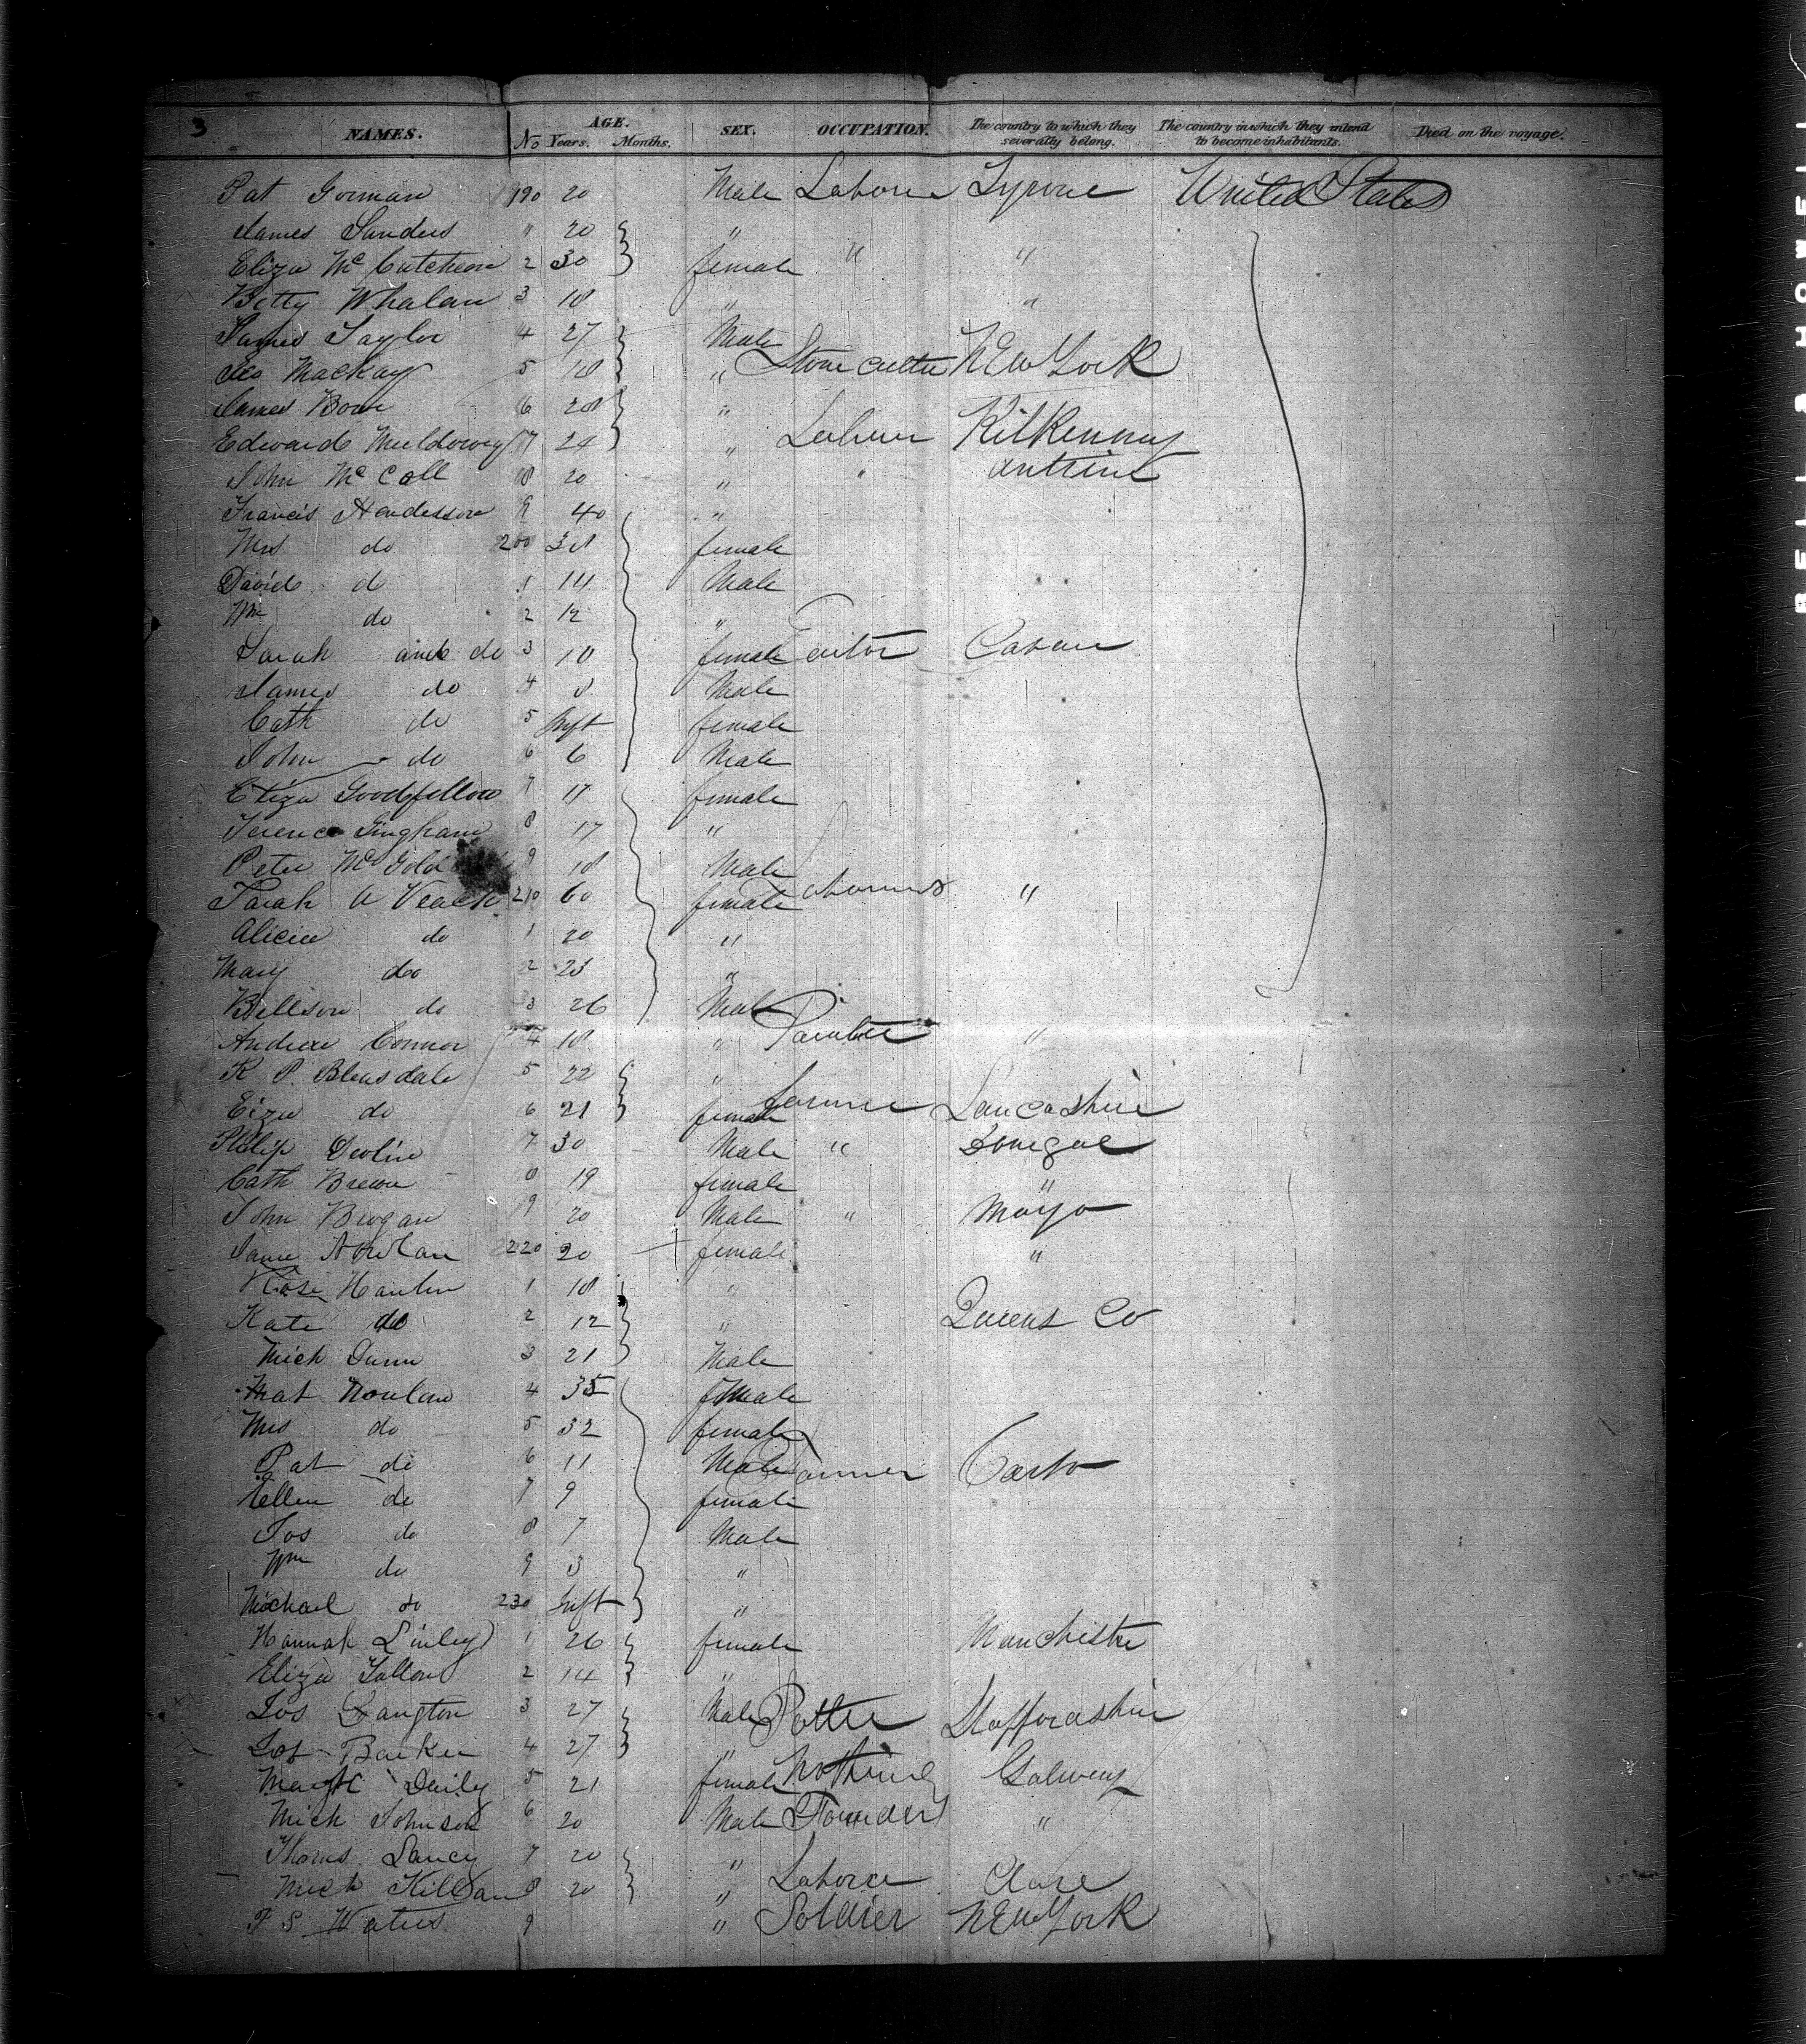 3 NAMES. No AGE. Years. Months. SEX. OCCUPATION. The country to which they severally belong. The country in which they intend to become inhabitants. Died on the voyage.
Pat Gorman 190 20 Male Laborer Tyrone United States
James Sanders " 20 "
Eliza Mc Cutcheon 2 30 female " "
Betty Whalan 3 18 " "
James Taylor 4 27 Male
Geo Mackay 5 18 " Stone cutter New York
James Bowe 6 20 "
Edward Muldowny 7 24 " Laborer Kilkenny
John Mc Coll 8 20 " " Antrim
Francis Henderson 9 40 "
Mrs do 200 38 female
David do 1 14 Male
Wm do 2 12 "
Sarah do 3 10 female Cavan
James do 4 8 Male
Cath do 5 Inft female
John do 6 6 Male
Eliza Goodfellow 7 17 female
Terence Gingham 8 17 "
Peter Mc 9 18 Male
Sarah A Veach 210 60 female "
Alicia do 1 20 "
Mary do 2 23 "
Billison do 3 26 Male
Andrew Connor 4 18 " Painter "
R P. Bleasdale 5 22 "
Eliza do 6 21 female Farmer Lancashire
Philip Devlin 7 30 Male " Donegal
Cath Brown 8 19 female "
John Brogan 9 20 Male " Mayo
Jane Nowlan 220 20 female "
Rose Hanlon 1 18 "
Kate do 2 12 " Queens Co
Mich Dunn 3 21 Male
Mat Noulan 4 35 Male
Mrs do 5 32 female
Pat do 6 11 Male Farmer Carlo
Ellen do 7 9 female
Jos do 8 7 Male
Wm do 9 3 "
Michael do 230 Inft "
Hannah Linley 1 26 female Manchester
Eliza Fallon 2 14 "
Jos Langton 3 27 Male Potter Staffordshire
Jos Barker 4 27 "
Margt Daily 5 21 female Nothing Galway
Mich Johnson 6 20 Male Founder "
Thomas Lancy 7 20 "
Mich Killean 8 20 " Laborer Clare
P S Waters 9 " Soldier New York